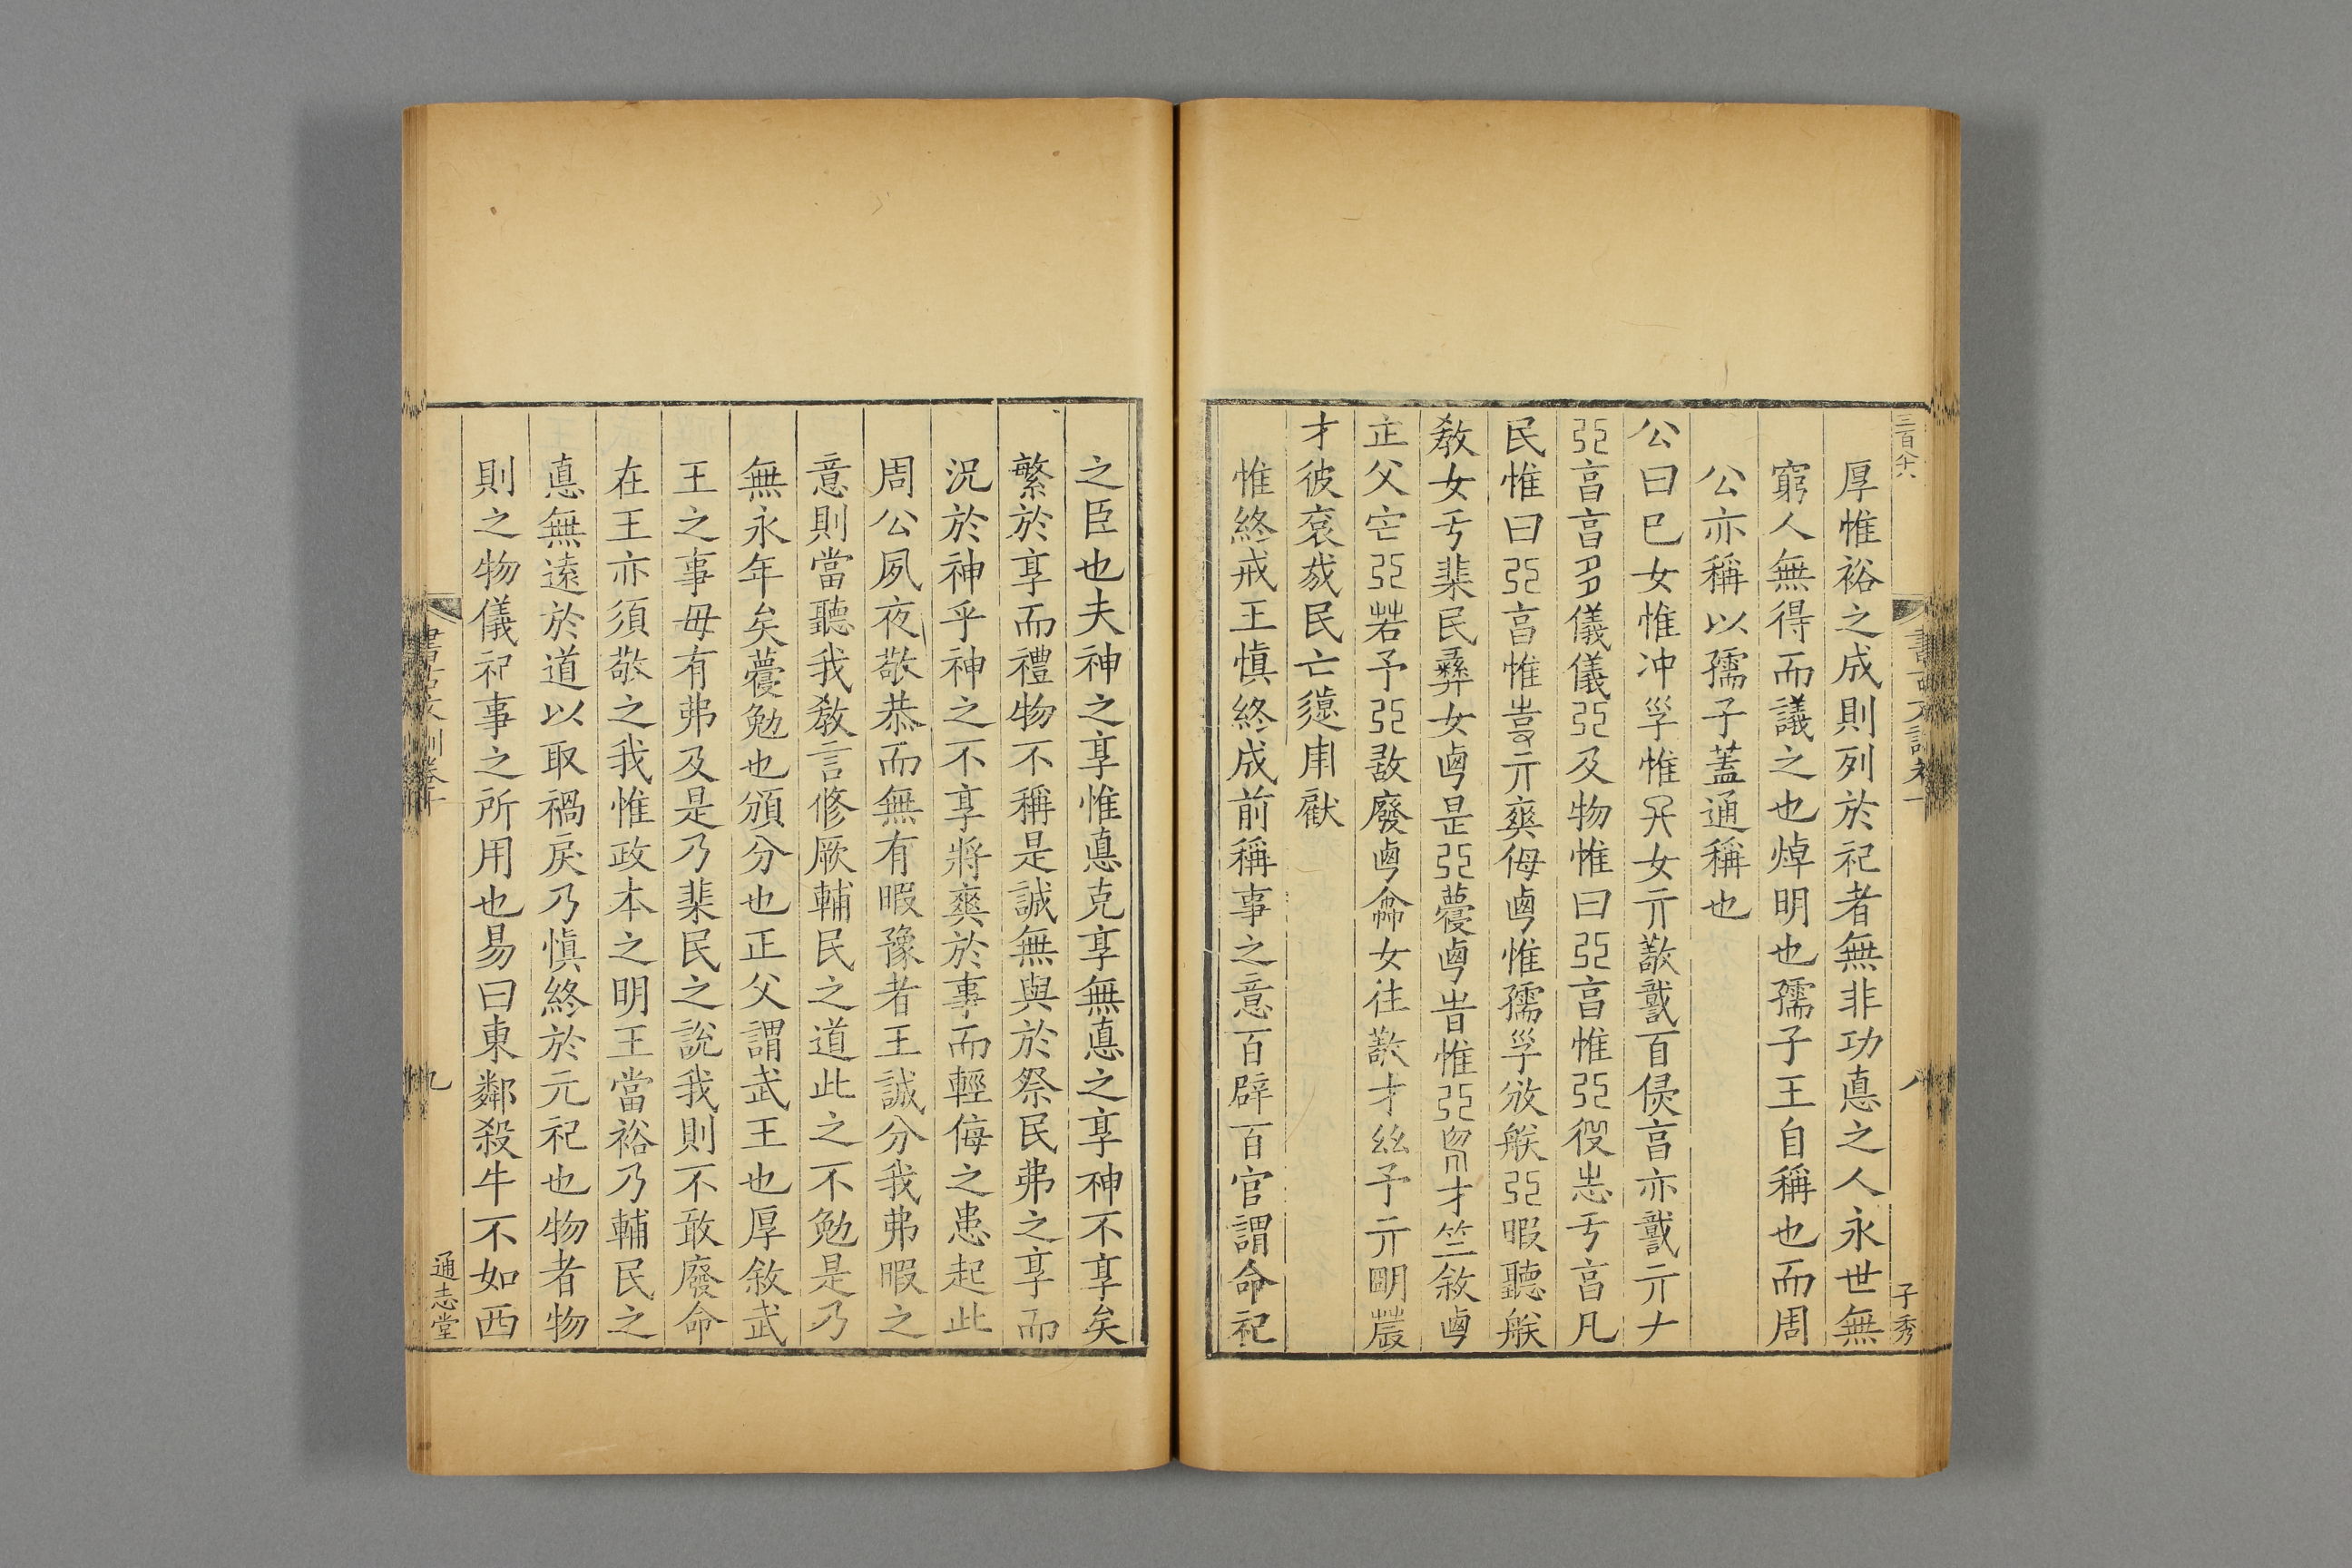 三百八十六
厚惟裕之成則列於祀者無非功悳之人永世無
窮人無得而議之也焯明也孺子王自稱也而周
公亦稱以孺子蓋通稱也
公曰巳女惟冲孚惟女亓敬戠百矦亯亦戠亓ナ
弜亯亯多儀儀弜及物惟曰弜亯惟弜役志亏亯凡
民惟曰弜亯惟亓爽侮惟孺孚攽朕弜暇聽朕
敎女亏棐民彝女是弜蘉旹惟弜才竺敘
正父它弜若予弜敢廢命女往敬才兹予亓明農
才彼裒哉民亡遠用
惟終戒王愼終成前稱事之意百辟百官謂命祀
八
子秀
之臣也夫神之享惟悳克享無悳之享神不享矣
繁於享而禮物不稱是誠無與於祭民弗之享而
況於神乎神之不享將爽於事而輕侮之患起此
周公夙夜敬恭而無有暇豫者王誠分我弗暇之
意則當聽我敎言修厥輔民之道此之不勉是乃
無永年矣蘉勉也頒分也正父謂武王也厚敘武
王之事毋有弗及是乃棐民之說我則不敢廢命
在王亦須敬之我惟政本之明王當裕乃輔民之
悳無遠於道以取禍戾乃愼終於元祀也物者物
則之物儀祀事之所用也易曰東鄰殺牛不如西
九
通志堂